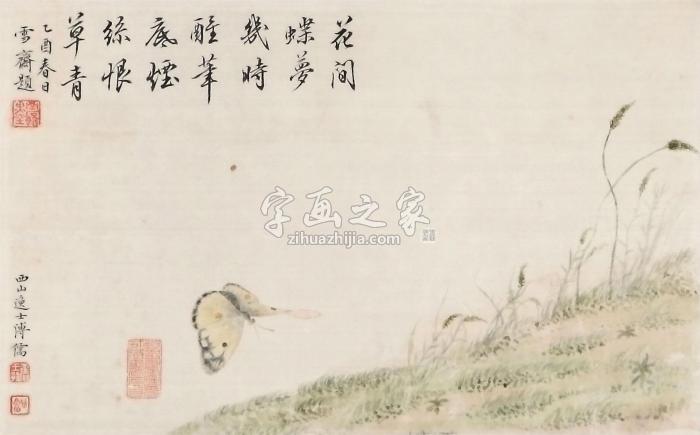 花間
蝶夢
幾時
醒筆
底煙
絲恨
草青
乙酉春日
雪齋題
西山逸士溥儒
字画之家
zihuazhijia.com